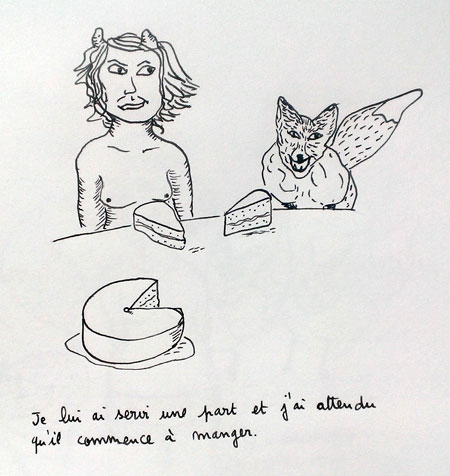 Je lui ai servi une part et j'ai attendu
qu'il commence à manger.